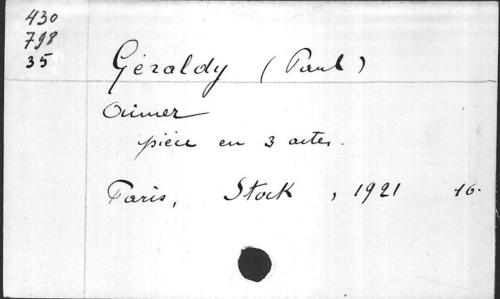 430
798
35
Géraldy (Paul)
Aimer
pièce en 3 actes.
Paris, Stock, 1921 16.